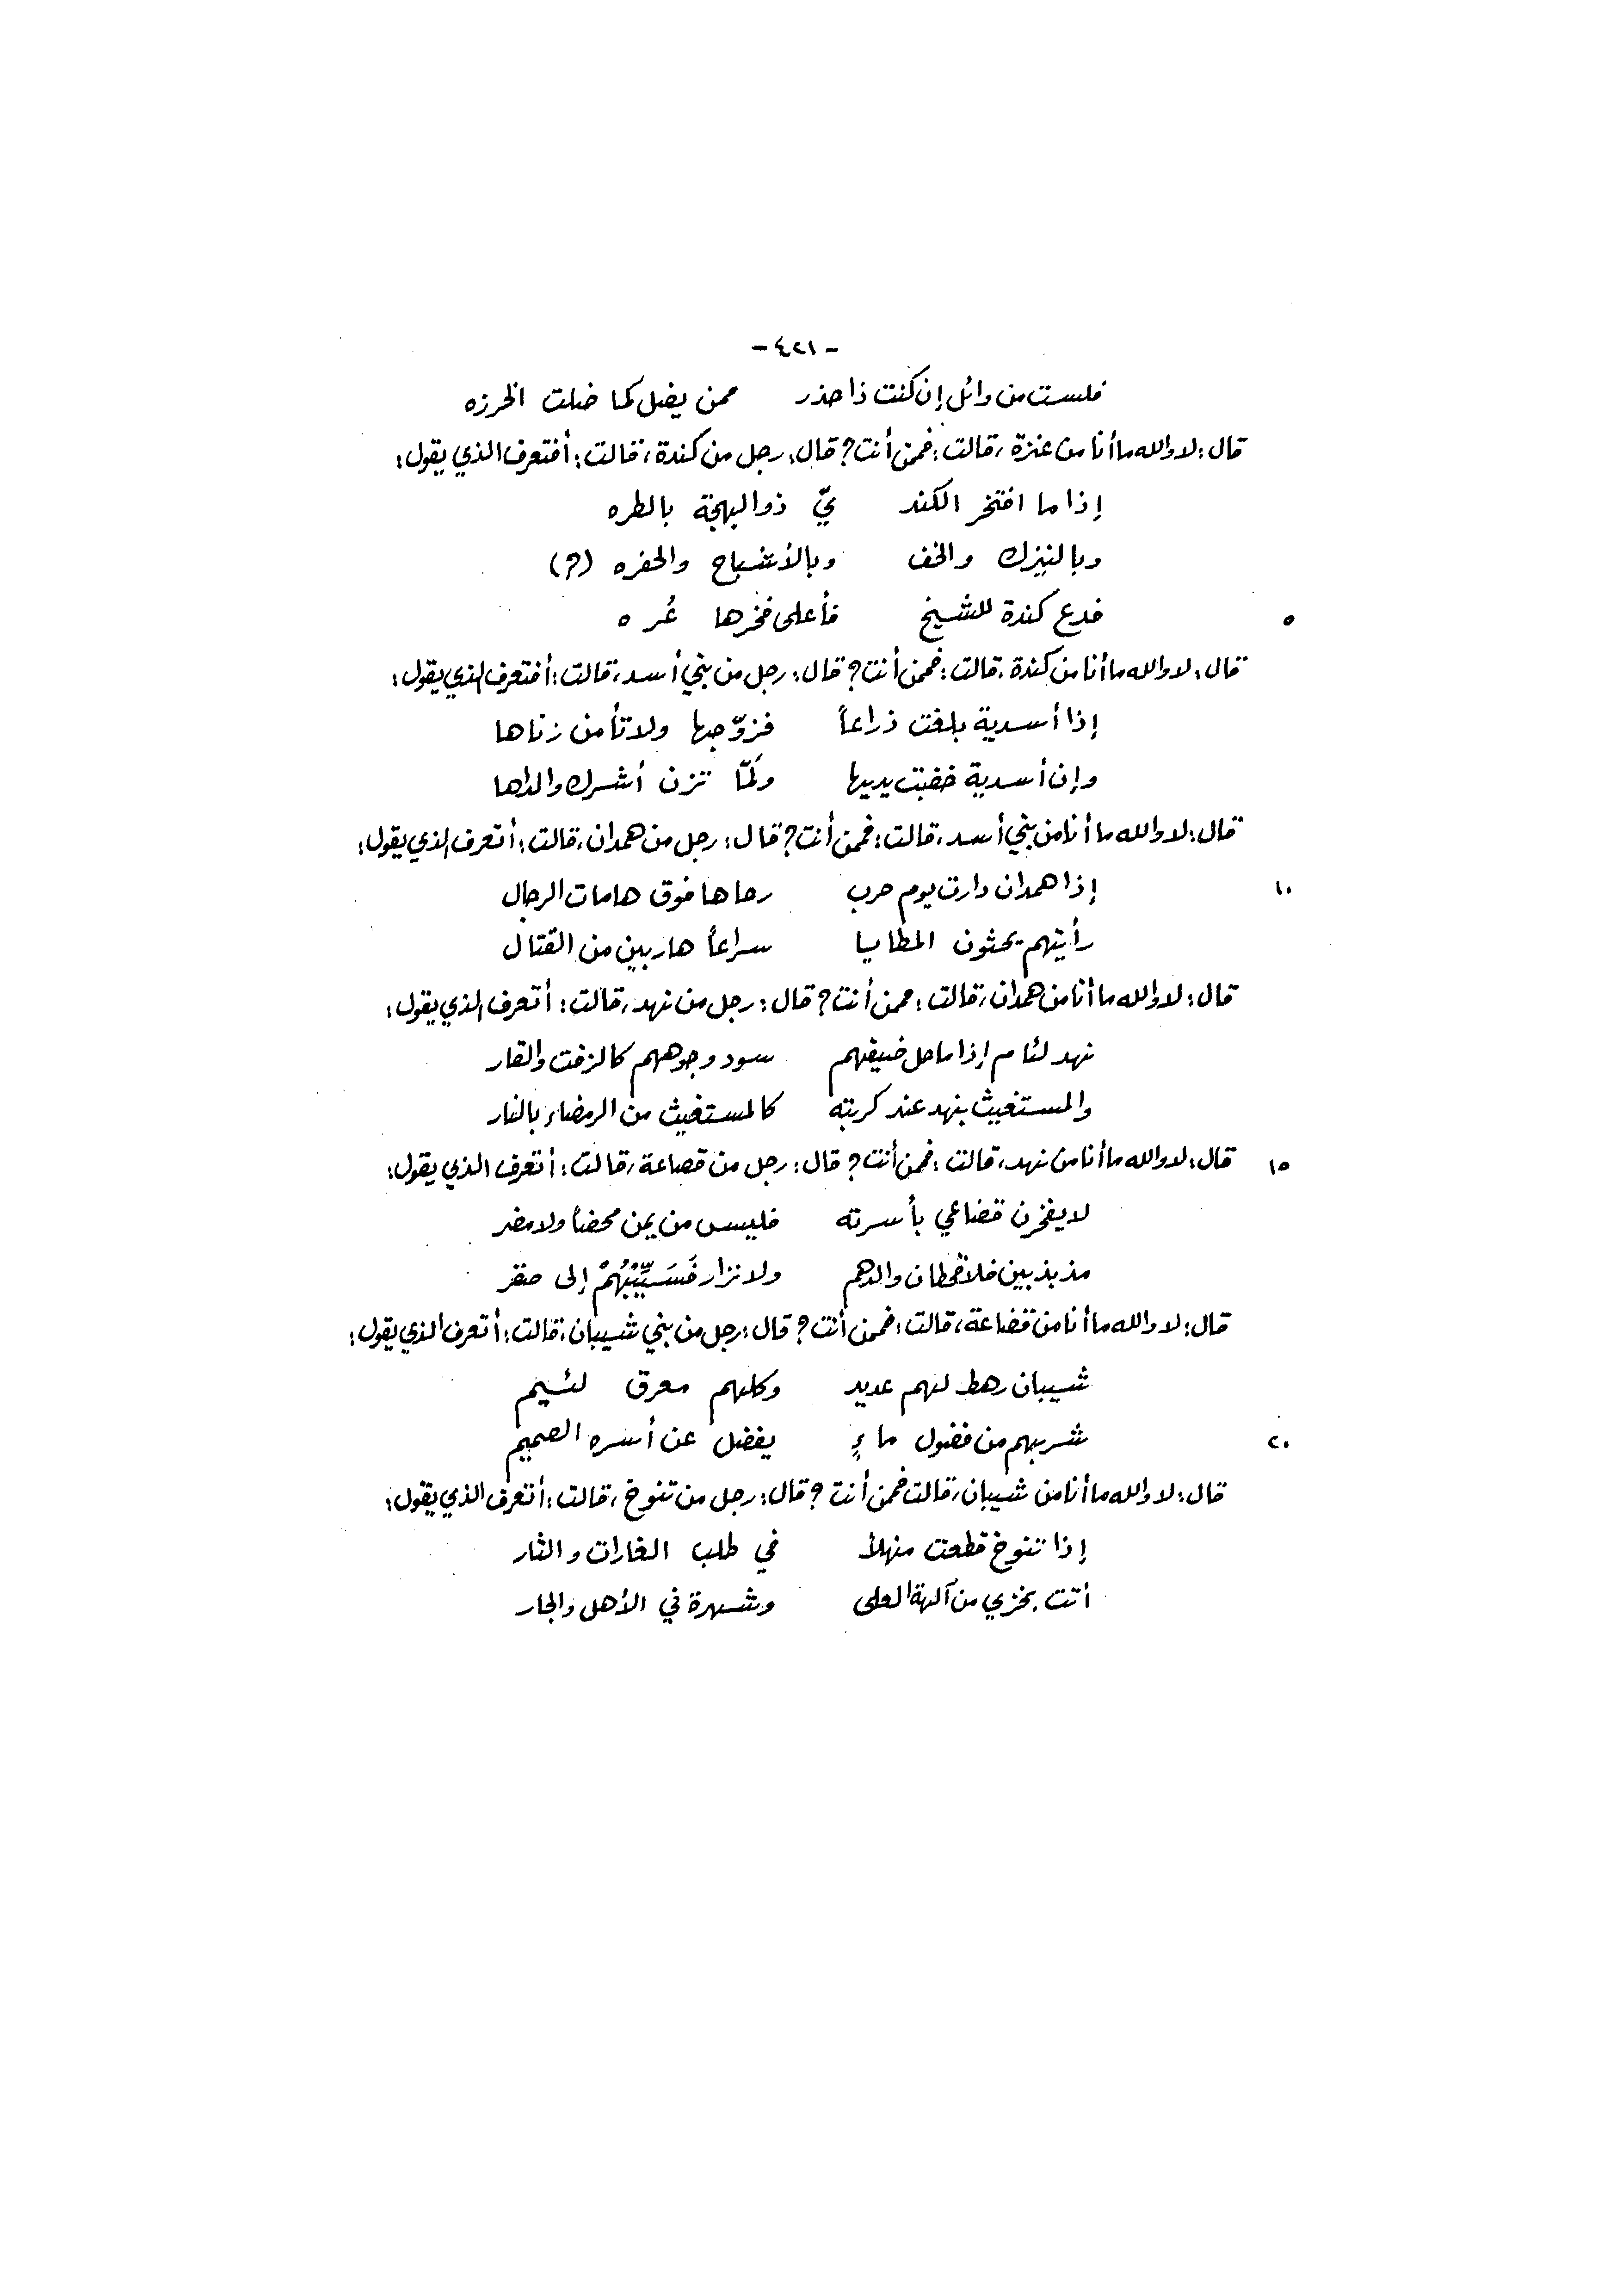 - ٤٢١ -
فلست من وائل إن كنت ذا حذر ممن يضل كما ضلت الخرزه
قال: لا والله ما أنا من عنزة، قالت: فممن أنت؟ قال: رجل من كندة، قالت: أفتعرف الذي يقول:
إذا ما افتخر الكند يّ ذو البهجة بالطره
وبالنيزك والخف وبالأشباح والحفره (؟)
٥ فدع كندة للشيخ فأعلى فخرها عُره
قال: لا والله ما أنا من كندة، قالت: فممن أنت؟ قال: رجل من بني أسد، قالت: أفتعرف الذي يقول:
إذا أسدية بلغت ذراعاً فزوّجها ولا تأمن زناها
وإن أسدية خضبت يديها ولمّا تزن أشرك والداها
قال: لا والله ما أنا من بني أسد، قالت: فممن أنت؟ قال: رجل من همدان، قالت: أتعرف الذي يقول:
١٠ إذا همدان دارت يوم حرب رحاها فوق هامات الرجال
رأيتهم يحثون المطايا سراعاً هاربين من القتال
قال: لا والله ما أنا من همدان، قالت: ممن أنت؟ قال: رجل من نهد، قالت: أتعرف الذي يقول:
نهد لئام إذا ما حل ضيفهم سود وجوههم كالزفت والقار
والمستغيث بنهد عند كربته كالمستغيث من الرمضاء بالنار
١٥ قال: لا والله ما أنا من نهد، قالت: فممن أنت؟ قال: رجل من قضاعة، قالت: أتعرف الذي يقول:
لا يفخرن قضاعي بأسرته فليس من يمن محضاً ولا مضر
مذبذبين فلا قحطان والدهم ولا نزار فَسَيِّبْهُمْ إلى صقر
قال: لا والله ما أنا من قضاعة، قالت: فممن أنت؟ قال: رجل من بني شيبان، قالت: أتعرف الذي يقول:
شيبان رهط لهم عديد وكلهم معرق لئيم
٢٠ شربهم من فضول ماءٍ يفضل عن أسره الصميم
قال: لا والله ما أنا من شيبان، قالت فممن أنت؟ قال: رجل من تنوخ، قالت: أتعرف الذي يقول:
إذا تنوخ قطعت منهلاً في طلب الغارات والثار
أتت بخزي من آلهة العلى وشهرة في الأهل والجار